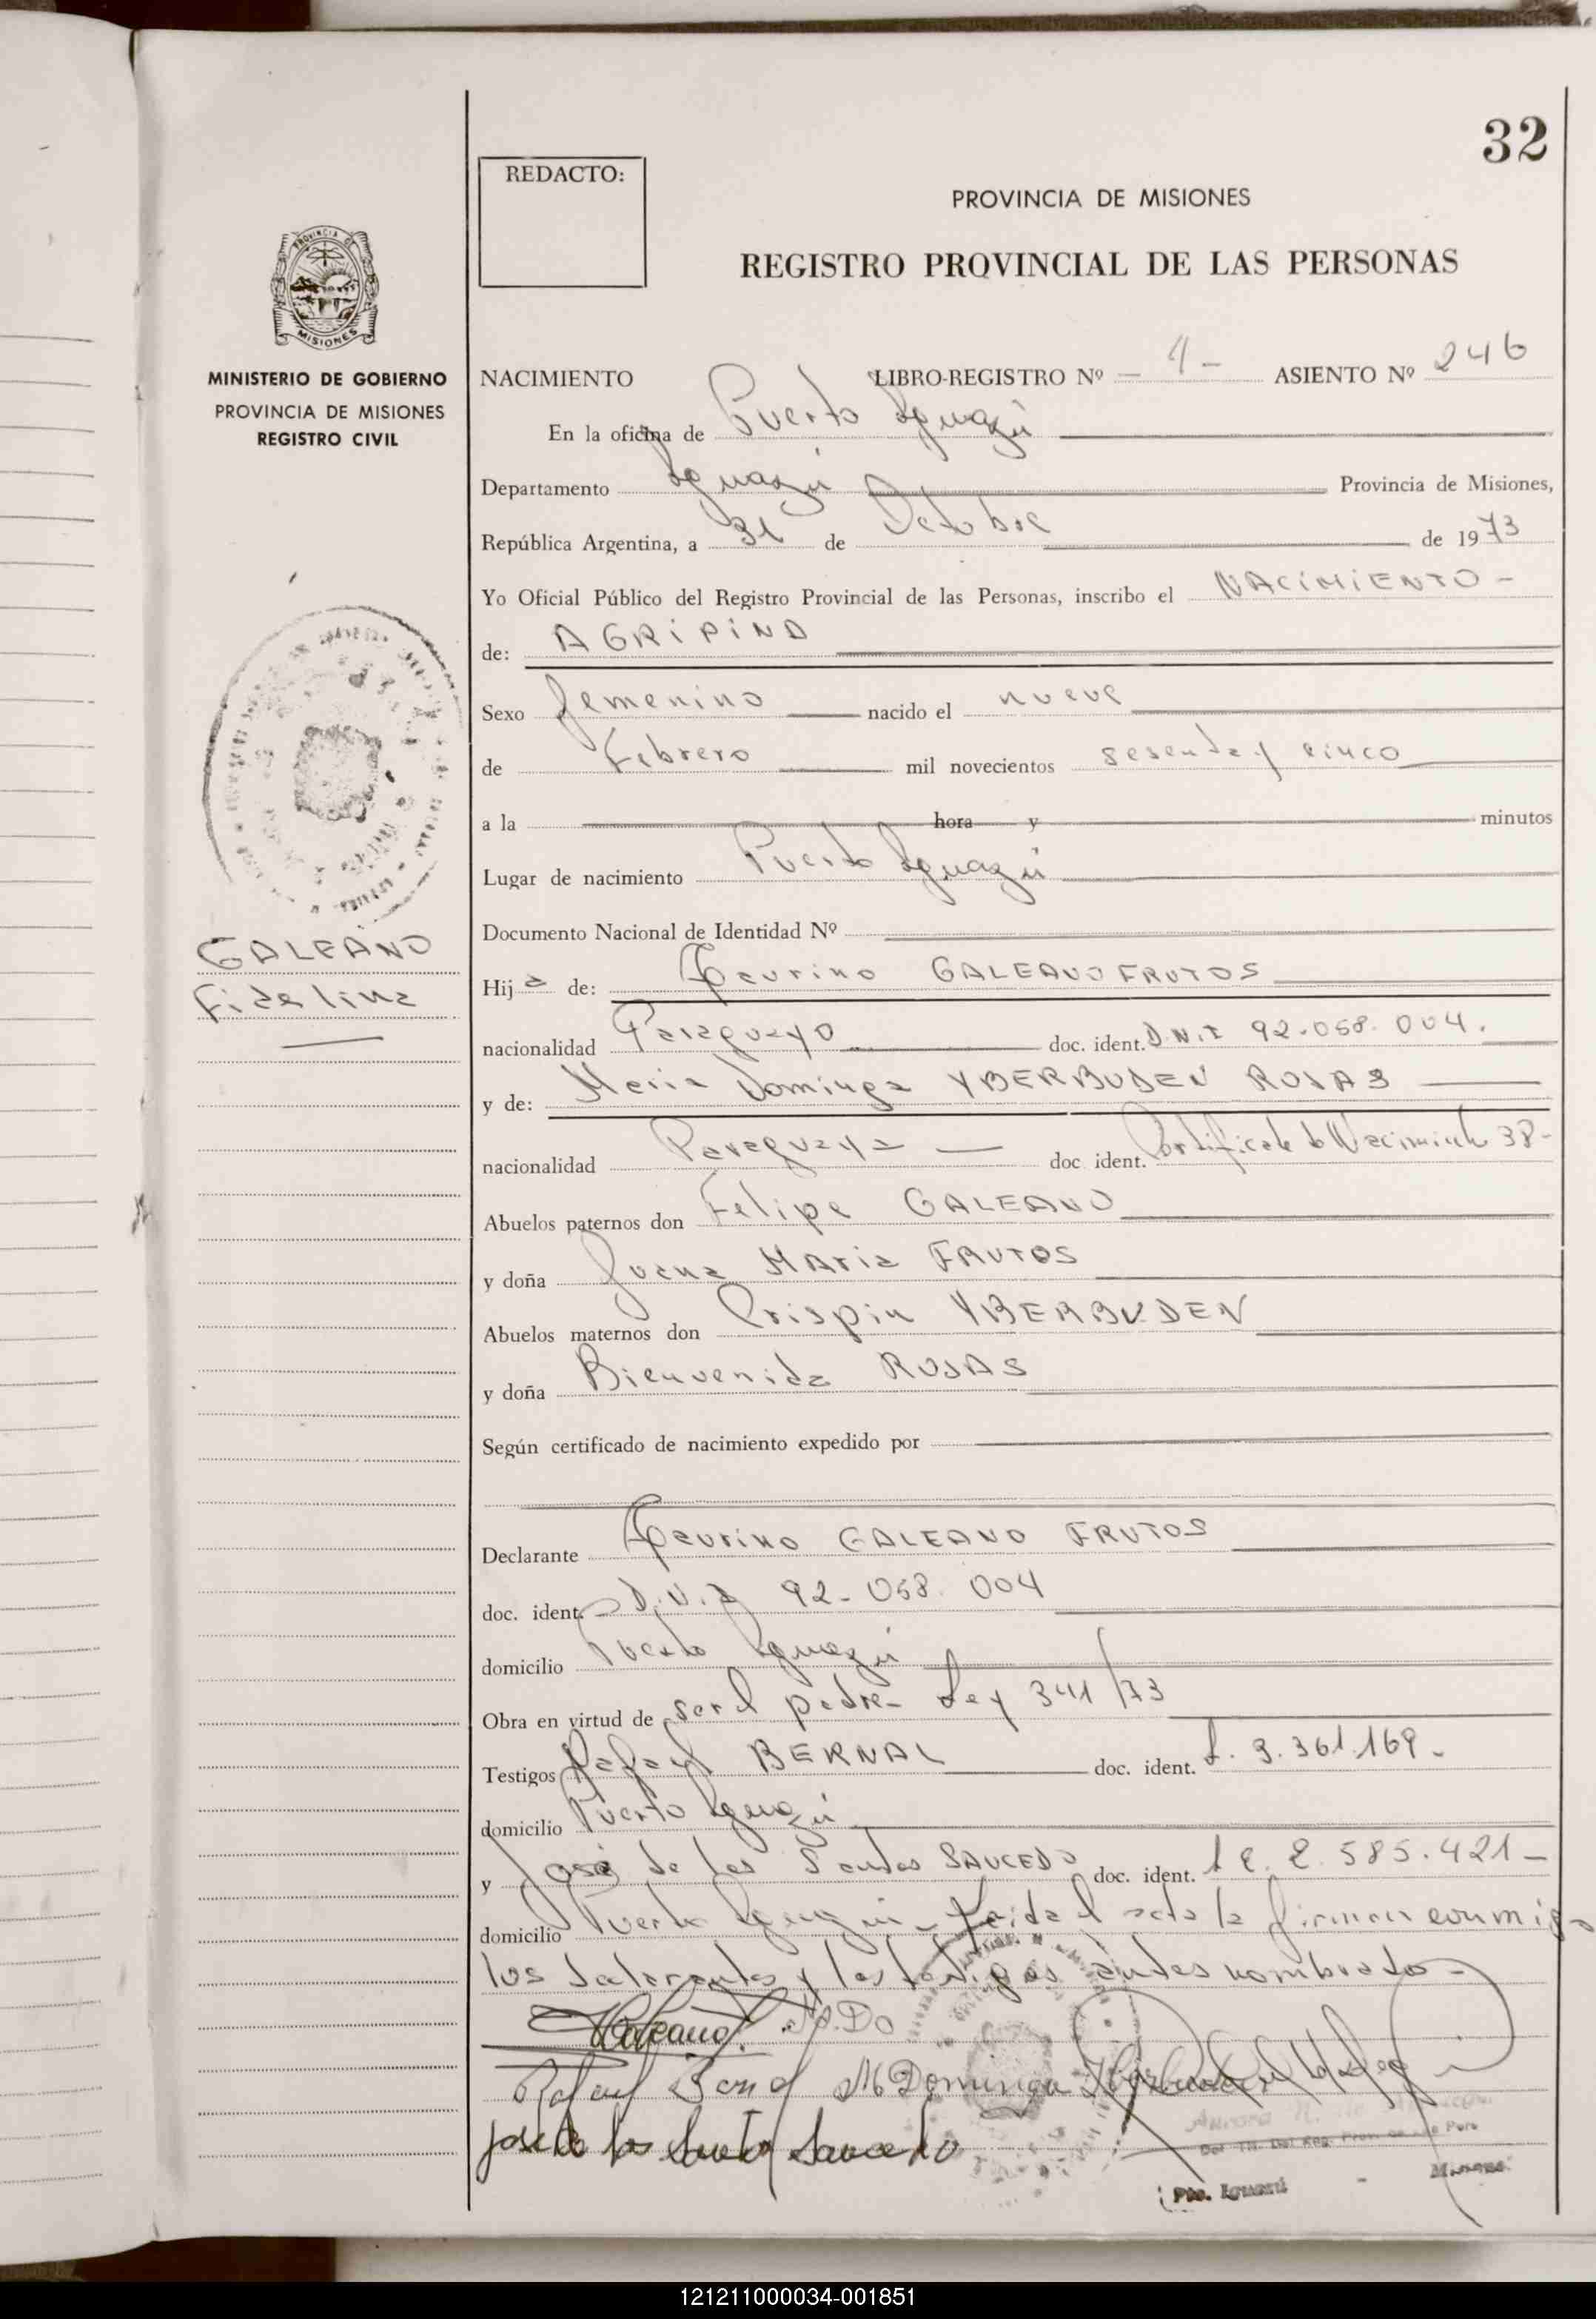 32
REDACTO:
PROVINCIA DE MISIONES
REGISTRO PROVINCIAL DE LAS PERSONAS
PROVINCIA DE
MISIONES
MINISTERIO DE GOBIERNO
PROVINCIA DE MISIONES
REGISTRO CIVIL
NACIMIENTO LIBRO-REGISTRO Nº - 4 - ASIENTO Nº 246
En la oficina de Puerto Iguazú
Departamento Iguazú Provincia de Misiones,
República Argentina, a 31 de Octubre de 1973
Yo Oficial Público del Registro Provincial de las Personas, inscribo el NACIMIENTO -
de: AGRIPINA
Sexo femenino nacido el nueve
de Febrero mil novecientos sesenta y cinco
a la hora y minutos
Lugar de nacimiento Puerto Iguazú
Documento Nacional de Identidad Nº
GALEANO
Fidelina
Hija de: Taurino GALEANO FRUTOS
nacionalidad Paraguayo doc. ident. D.N.I 92.058.004.
y de: Maria Dominga YBERBUDEN ROJAS
nacionalidad Paraguaya doc ident. Certificado de Nacimiento 38-
Abuelos paternos don Felipe GALEANO
y doña Juana MARIA FRUTOS
Abuelos maternos don Crispin YBERBUDEN
y doña Bienvenida ROJAS
Según certificado de nacimiento expedido por
Declarante Taurino GALEANO FRUTOS
doc. ident. D.N.I 92-058.004
domicilio Puerto Iguazú
Obra en virtud de ser el padre- Ley 341/73
Testigos Rafael BERNAL doc. ident. 3.361.169.
domicilio Puerto Iguazú
y José de los Santos SAUCEDO doc. ident. 2.585.421-
domicilio Puerto Iguazú - Leida el acta la firman conmigo
los declarantes y los testigos antes nombrados-
Galeano
M Dominga
José de los Santos Saucedo
Aurora
Pto. Iguazú
121211000034-001851